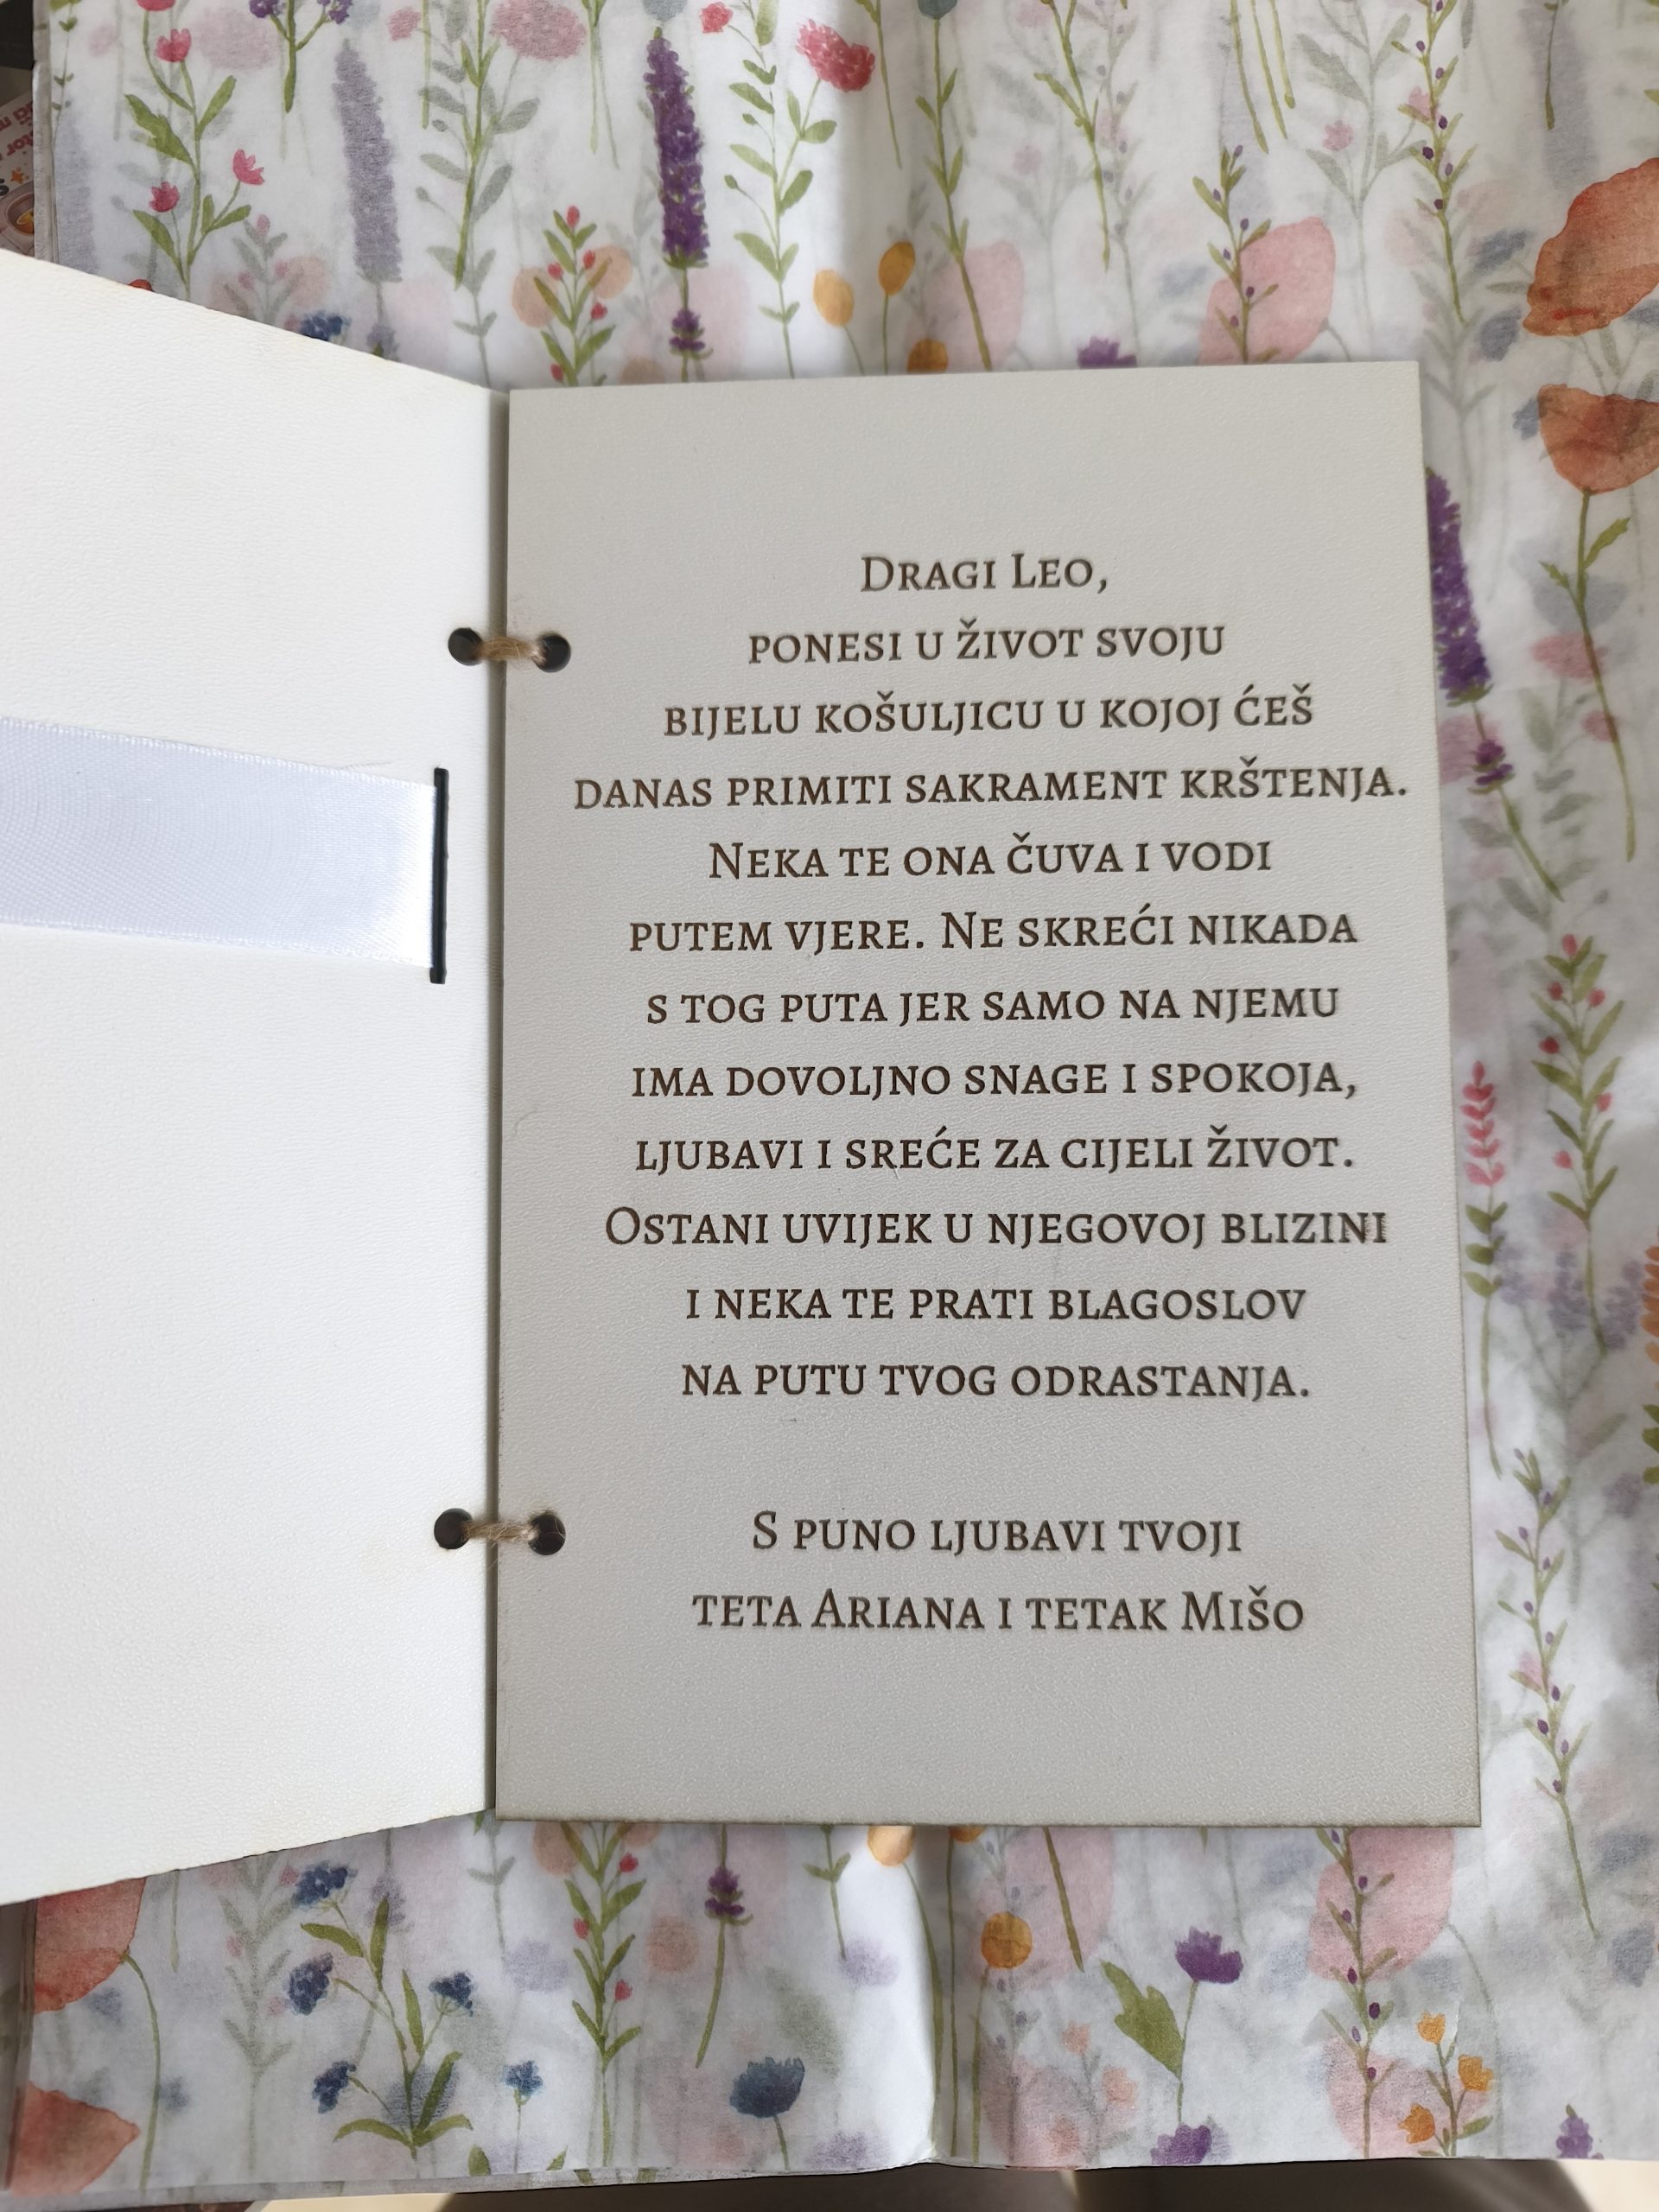 Dragi Leo,
ponesi u život svoju
bijelu košuljicu u kojoj ćeš
danas primiti sakrament krštenja.
Neka te ona čuva i vodi
putem vjere. Ne skreći nikada
s tog puta jer samo na njemu
ima dovoljno snage i spokoja,
ljubavi i sreće za cijeli život.
Ostani uvijek u njegovoj blizini
i neka te prati blagoslov
na putu tvog odrastanja.
S puno ljubavi tvoji
teta Ariana i tetak Mišo